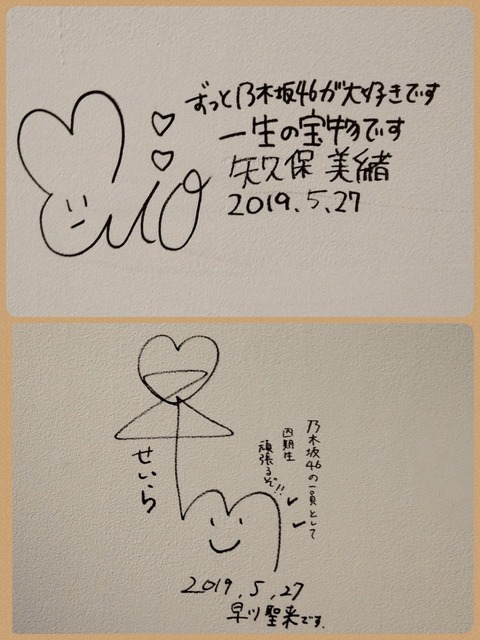 ずっと乃木坂46が大好きです
一生の宝物です
矢久保 美緒
2019.5.27
Mio
乃木坂46の一員として
四期生
頑張るぞ!!
せいら
2019.5.27
早川聖来です.